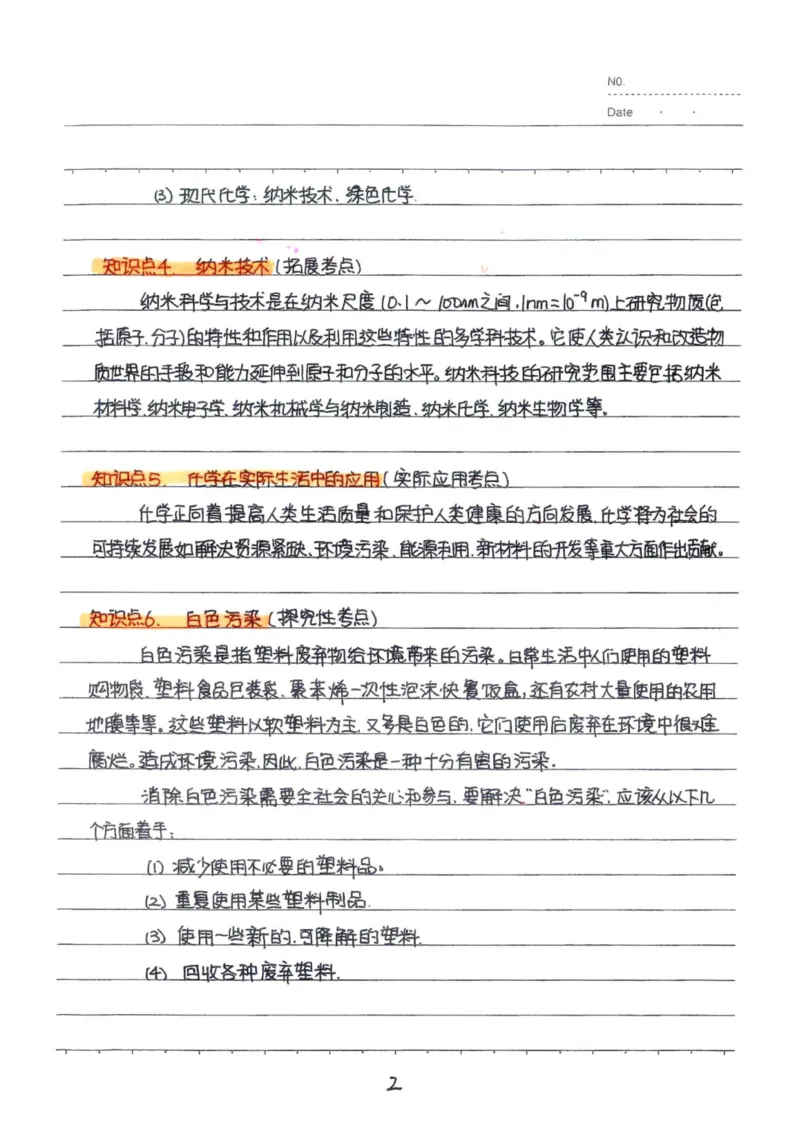 NO.
Date
(3) 现代化学：纳米技术、绿色化学.
知识点4. 纳米技术(拓展考点)
纳米科学与技术是在纳米尺度(0.1～100nm之间,1nm=10⁻⁹m)上研究物质(包
括原子、分子)的特性和作用以及利用这些特性的多学科技术。它使人类认识和改造物
质世界的手段和能力延伸到原子和分子的水平。纳米科技的研究范围主要包括纳米
材料学、纳米电子学、纳米机械学与纳米制造、纳米化学、纳米生物学等。
知识点5. 化学在实际生活中的应用(实际应用考点)
化学正向着提高人类生活质量和保护人类健康的方向发展,化学将为社会的
可持续发展如解决资源紧缺、环境污染、能源利用、新材料的开发等重大方面作出贡献。
知识点6. 白色污染(探究性考点)
白色污染是指塑料废弃物给环境带来的污染。日常生活中人们使用的塑料
购物袋、塑料食品包装袋、聚苯烯一次性泡沫快餐饭盒,还有农村大量使用的农用
地膜等等。这些塑料以软塑料为主,又多是白色的,它们使用后废弃在环境中很难
腐烂。造成环境污染,因此,白色污染是一种十分有害的污染.
消除白色污染需要全社会的关心和参与,要解决“白色污染”,应该从以下几
个方面着手:
(1) 减少使用不必要的塑料品。
(2) 重复使用某些塑料制品.
(3) 使用一些新的、可降解的塑料.
(4) 回收各种废弃塑料.
2